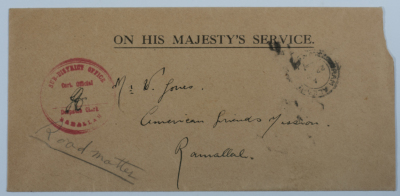 ON HIS MAJESTY'S SERVICE.
SUB-DISTRICT OFFICE
RAMALLAH
Mr W. Jones.
American Friends Mission.
Ramallah.
Road matter